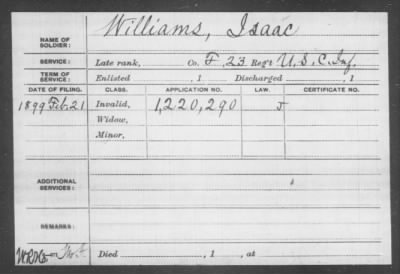 NAME OF SOLDIER: Williams, Isaac
SERVICE: Late rank, Co. F, 23 Reg't U.S.C. Inf.
TERM OF SERVICE: Enlisted , 1 Discharged , 1
DATE OF FILING. CLASS. APPLICATION NO. LAW. CERTIFICATE NO.
1899 Feb. 21 Invalid, 1,220,290 J
Widow,
Minor,
ADDITIONAL SERVICES:
REMARKS:
Died , 1 , at